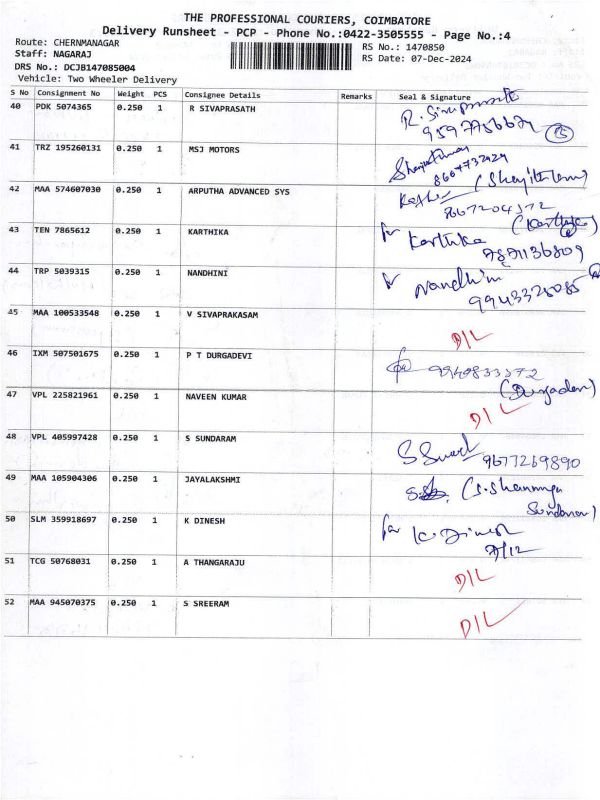 THE PROFESSIONAL COURIERS, COIMBATORE
Delivery Runsheet - PCP - Phone No.:0422-3505555 - Page No.:4
Route: CHERNMANAGAR
Staff: NAGARAJ
DRS No.: DCJB147085004
Vehicle: Two Wheeler Delivery
RS No.: 1470850
RS Date: 07-Dec-2024
S No Consignment No Weight PCS Consignee Details Remarks Seal & Signature
40 PDK 5074365 0.250 1 R SIVAPRASATH R. Sivaprasath
41 TRZ 195260131 0.250 1 MSJ MOTORS
42 MAA 574607030 0.250 1 ARPUTHA ADVANCED SYS
8667204372
43 TEN 7865612 0.250 1 KARTHIKA for Karthika (Karthika)
44 TRP 5039315 0.250 1 NANDHINI for Nandhini
9943326085
45 MAA 100533548 0.250 1 V SIVAPRAKASAM D/L
46 IXM 507501675 0.250 1 P T DURGADEVI 9940833372
(Durgadevi)
47 VPL 225821961 0.250 1 NAVEEN KUMAR D/L
48 VPL 405997428 0.250 1 S SUNDARAM 9677269890
49 MAA 105904306 0.250 1 JAYALAKSHMI (S. Shanmuga
Sundaram)
50 SLM 359918697 0.250 1 K DINESH for K. Dinesh
7/12
51 TCG 50768031 0.250 1 A THANGARAJU D/L
52 MAA 945070375 0.250 1 S SREERAM D/L